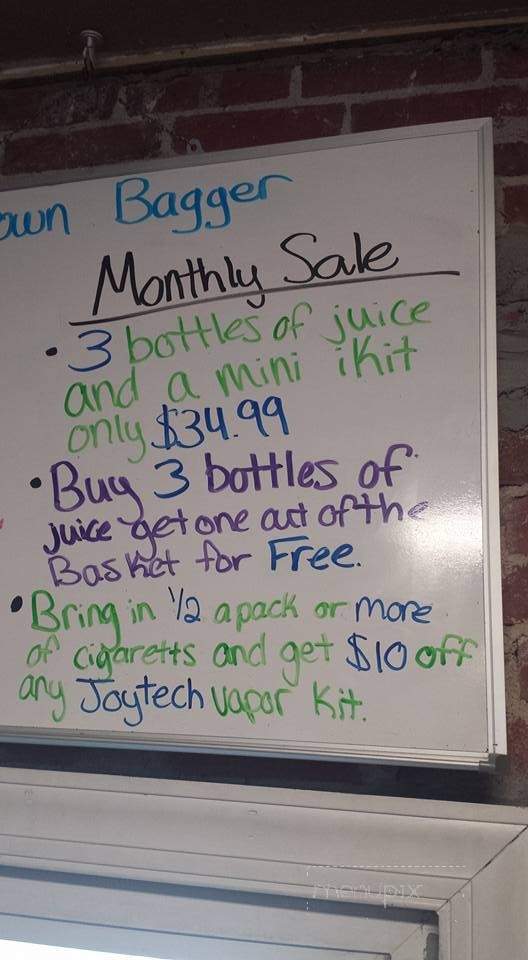 own Bagger
Monthly Sale
• 3 bottles of juice
and a mini iKit
only $34.99
• Buy 3 bottles of
juice get one out of the
Basket for Free.
• Bring in 1/2 a pack or more
of cigaretts and get $10 off
any Joytech vapor Kit.
menupix